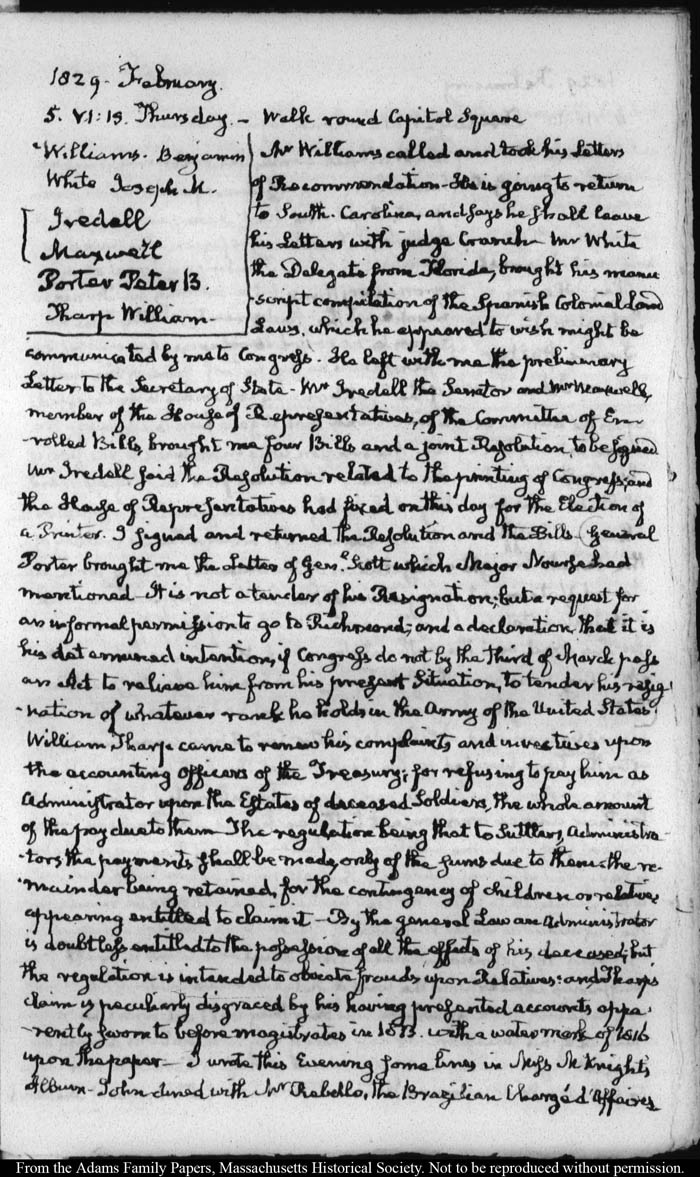 1829. February.
5. VI:15. Thursday. — Walk round Capitol Square
Williams. Benjamin
White Joseph M.
Iredell
Maxwell
Porter Peter B.
Tharp William.
Mr Williams called and took his Letters
of Recommendation—He is going to return
to South-Carolina, and says he shall leave
his Letters with judge Cranch—Mr White
the Delegate from Florida, brought his manu
-script compilation of the Spanish Colonial Land
Laws, which he appeared to wish might be
communicated by me to Congress. He left with me the preliminary
Letter to the Secretary of State—Mr Iredell the Senator and Mr Maxwell,
member of the House of Representatives, of the Committee of En-
-rolled Bills, brought me four Bills and a joint Resolution, to be signed
Mr Iredell said the Resolution related to the printing of Congress; and
the House of Representatives had fixed on this day for the Election of
a Printer. I signed and returned the Resolution and the Bills—General
Porter brought me the Letter of Genl. Scott which Major Nourse had
mentioned—It is not a tender of his Resignation; but a request for
an informal permission to go to Richmond; and a declaration, that it is
his determined intention, if Congress do not by the third of March pass
an Act to relieve him from his present Situation, to tender his resig
-nation of whatever rank he holds in the Army of the United States.
William Tharp came to renew his complaints and invectives upon
the accounting Officers of the Treasury; for refusing to pay him as
Administrator upon the Estates of deceased Soldiers, the whole amount
of the pay due to them—The regulation being that to Suttlers, Administra-
-tors the payments shall be made, only of the sums due to them: the re-
-mainder being retained, for the contingency of children or relatives
appearing entitled to claim it—By the general Law an Administrator
is doubtless entitled to the possession of all the effects of his deceased; but
the regulation is intended to obviate frauds upon Relatives: and Tharp's
claim is peculiarly disgraced by his having presented accounts appa
-rently sworn to before magistrates in 1813. with a water mark of 1816
upon the paper—I wrote this Evening some lines in Miss McKnight's
Album—John dined with Mr Rebello, the Brazilian Chargé d'Affaires
From the Adams Family Papers, Massachusetts Historical Society. Not to be reproduced without permission.